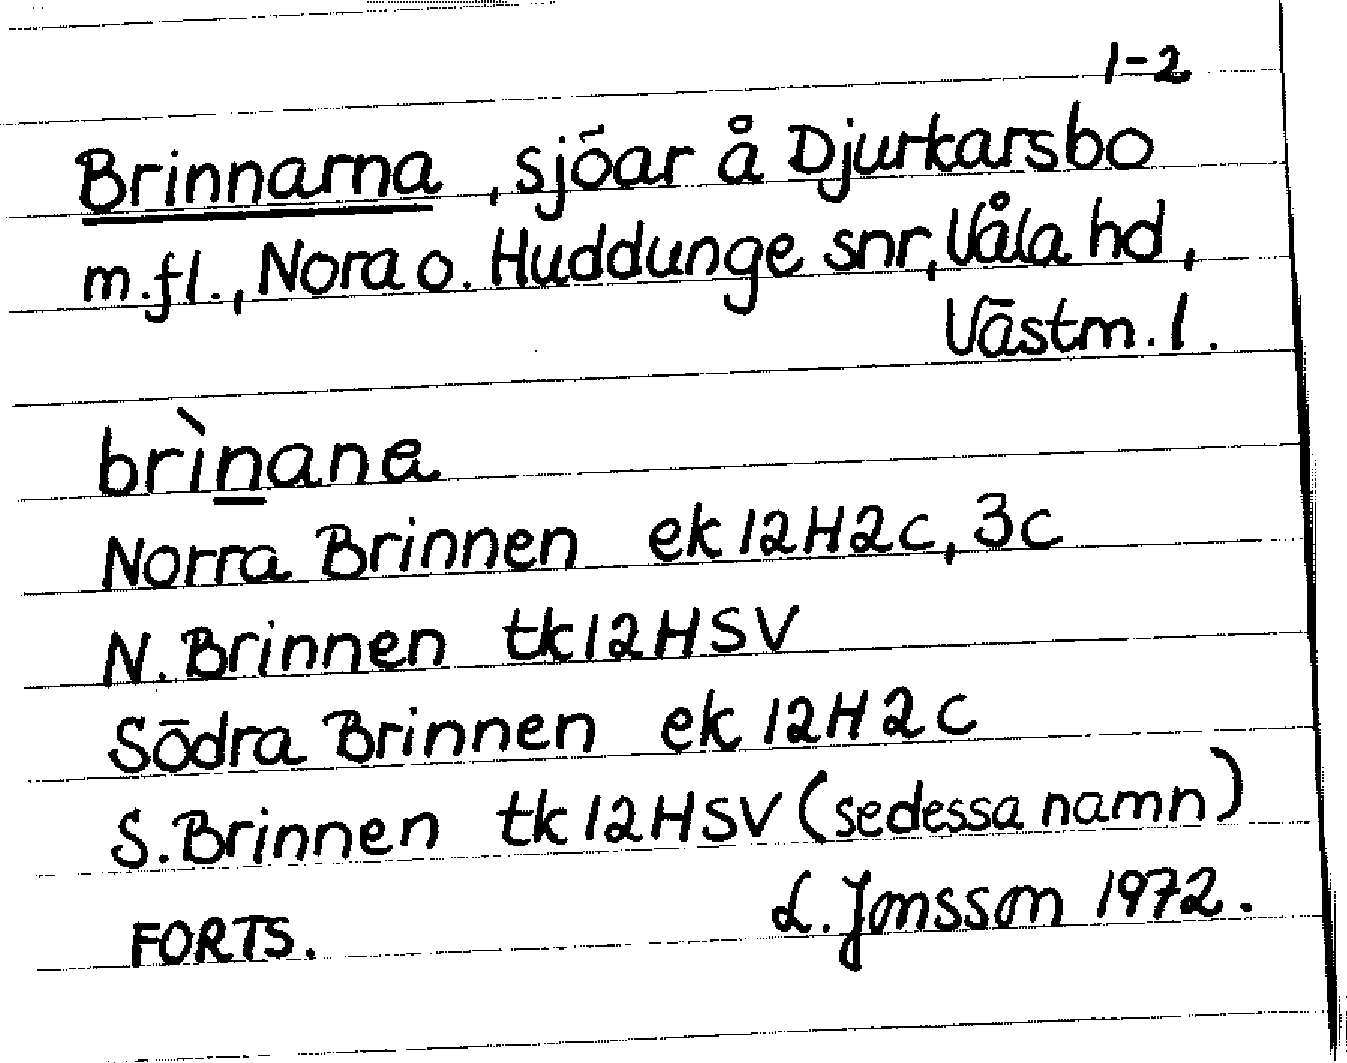 1-2
Brinnarna, sjöar å Djurkarsbo
m.fl., Nora o. Huddunge snr, Våla hd,
Västm. l.
brìnana
Norra Brinnen ek 12H2c, 3c
N. Brinnen tk 12HSV
Södra Brinnen ek 12H2c
S. Brinnen tk 12HSV (sedessa namn)
FORTS. L. Jonsson 1972.